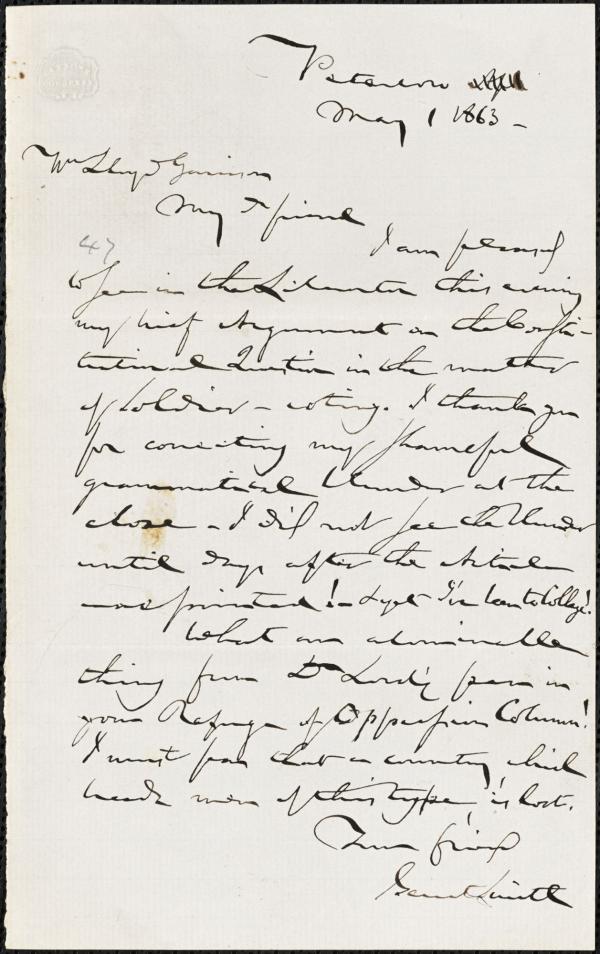 Peterboro
May 1 1863 -
Wm Lloyd Garrison
My Dr friend
47
I am pleased
to see in the Liberator this evening
my brief Argument on the Consti-
tutional Question in the matter
of Soldier - voting. I thank you
for correcting my shameful
grammatical blunder at the
close - I did not see the blunder
until days after the Article
was printed! - & yet I've been to College!
What an admirable
thing from Dr Lord's pen in
your Refuge of Oppression Column!
I must fear that a country which
men of this type, is lost.
Your friend
Gerrit Smith